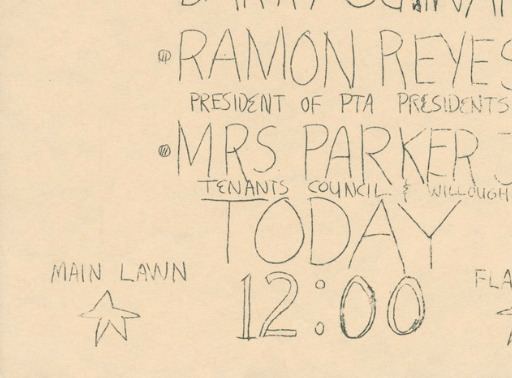 RAMON REYES
PRESIDENT OF PTA PRESIDENTS
MRS PARKER
TENANTS COUNCIL &
TODAY
MAIN LAWN
12:00